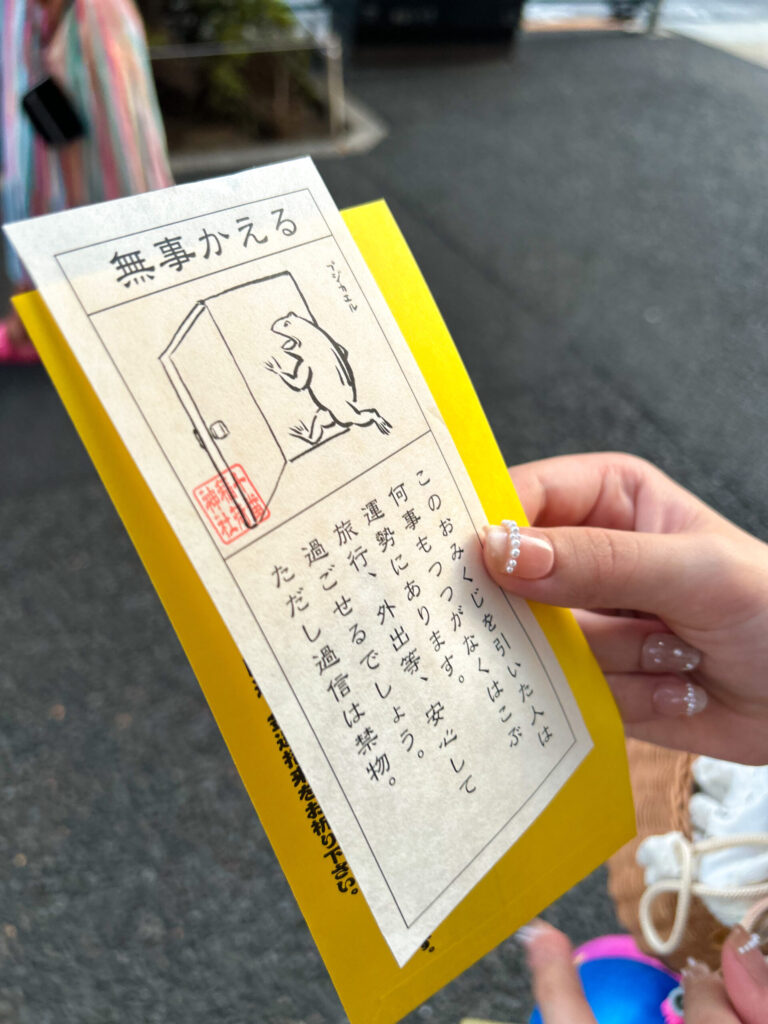 無事かえる
ブジカエル
十番
稲荷
神社
このおみくじを引いた人は
何事もつつがなくはこぶ
運勢にあります。
旅行、外出等、安心して
過ごせるでしょう。
ただし過信は禁物。
す。
招来をお祈り下さい。